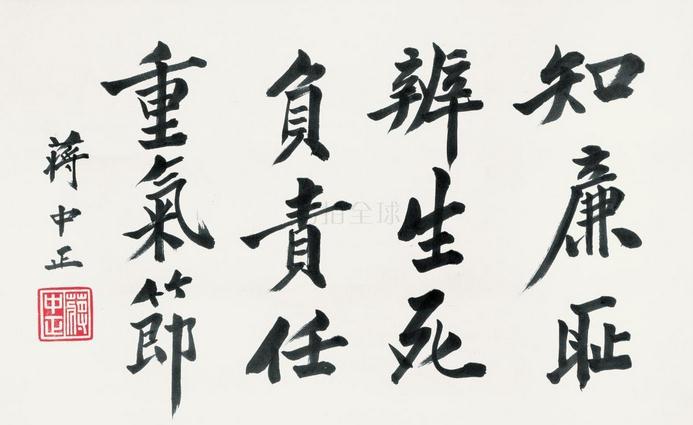 知廉恥
辨生死
負責任
重氣節
蔣中正
蔣中正
拍全球